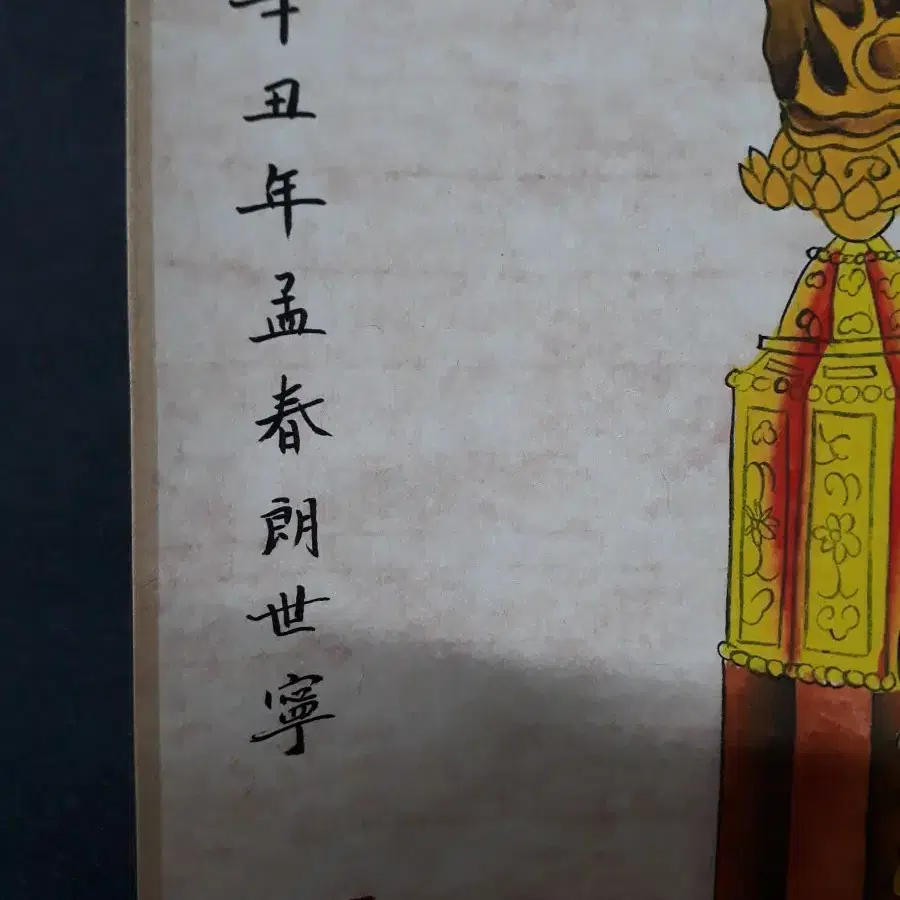 辛丑年孟春朗世寧